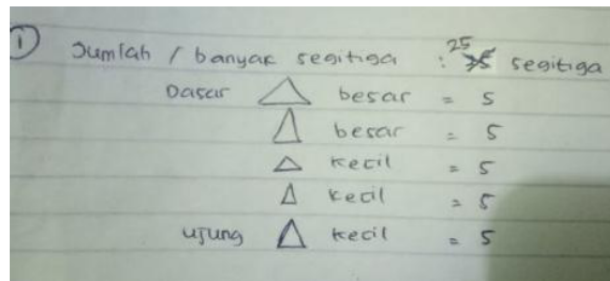 1 Jumlah / banyak segitiga : 25 segitiga
Dasar △ besar = 5
△ besar = 5
△ kecil = 5
△ kecil = 5
ujung △ kecil = 5